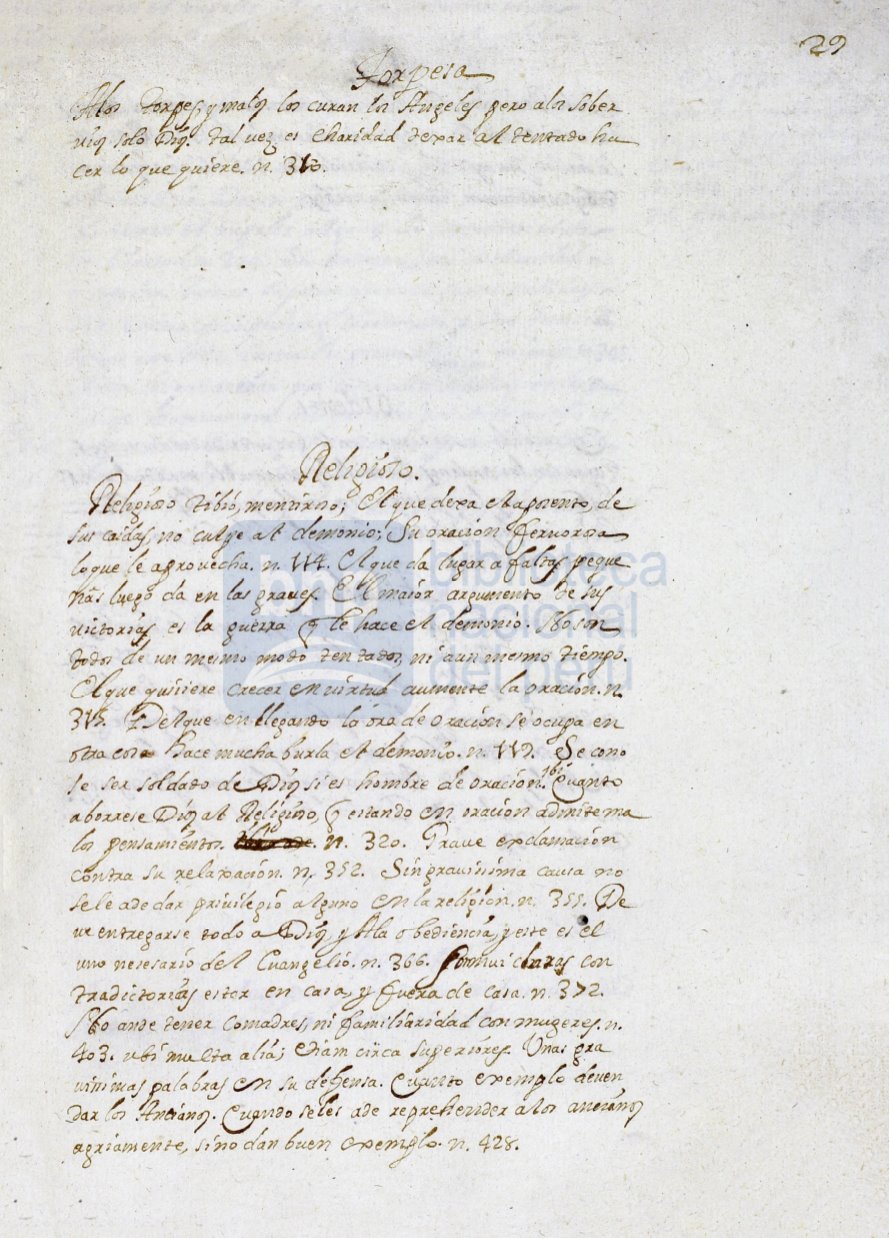 29
Torpeza
Alos torpes, y malos los curan los Angeles, pero alos sober
vios solo Dios. tal vez es charidad dexar al tentado ha
cer lo que quiere. n. 310.
Religioso.
Religioso tibio, mentiroso; El que dexa el aposento, de
sus caidas, no culpe al demonio; Su oracion fervorosa
lo que le aprovecha. n. 114. El que da lugar a faltas peque
ñas luego da en las graves. El maior argumento de sus
victorias es la guerra q̃ le hace el demonio. No son
todos de un mesmo modo tentados, ni aun mesmo tiempo.
El que quisiere crecer en virtud aumente la oracion. n.
315. Del que en llegando la ora de oracion se ocupa en
otra cosa hace mucha burla el demonio. n. 119. Se cono
se ser soldado de Dios si es hombre de oracion. ibi. Cuanto
aborrese Dios al Religioso, q̃ estando en oracion admite ma
los pensamientos. n. 320. Grave exclamacion
contra su relaxacion. n. 352. Sin gravissima causa no
sele a de dar privilegio alguno en la religion. n. 355. De
ve entregarse todo a Dios y Ala obediencia, y este es el
uno nesesario del Evangelio. n. 366. Son mui claras con
tradictorias estar en casa, y fuera de casa. n. 372.
No ande tener Comadres, ni familiaridad con mugeres. n.
403. ubi multa alia; etiam circa superiores. Unas gra
visimas palabras en su defensa. Cuanto exemplo deven
dar los Ancianos. Cuando seles a de reprehender a los ancianos
agriamente, sino dan buen exemplo. n. 428.
biblioteca
nacional
del perú